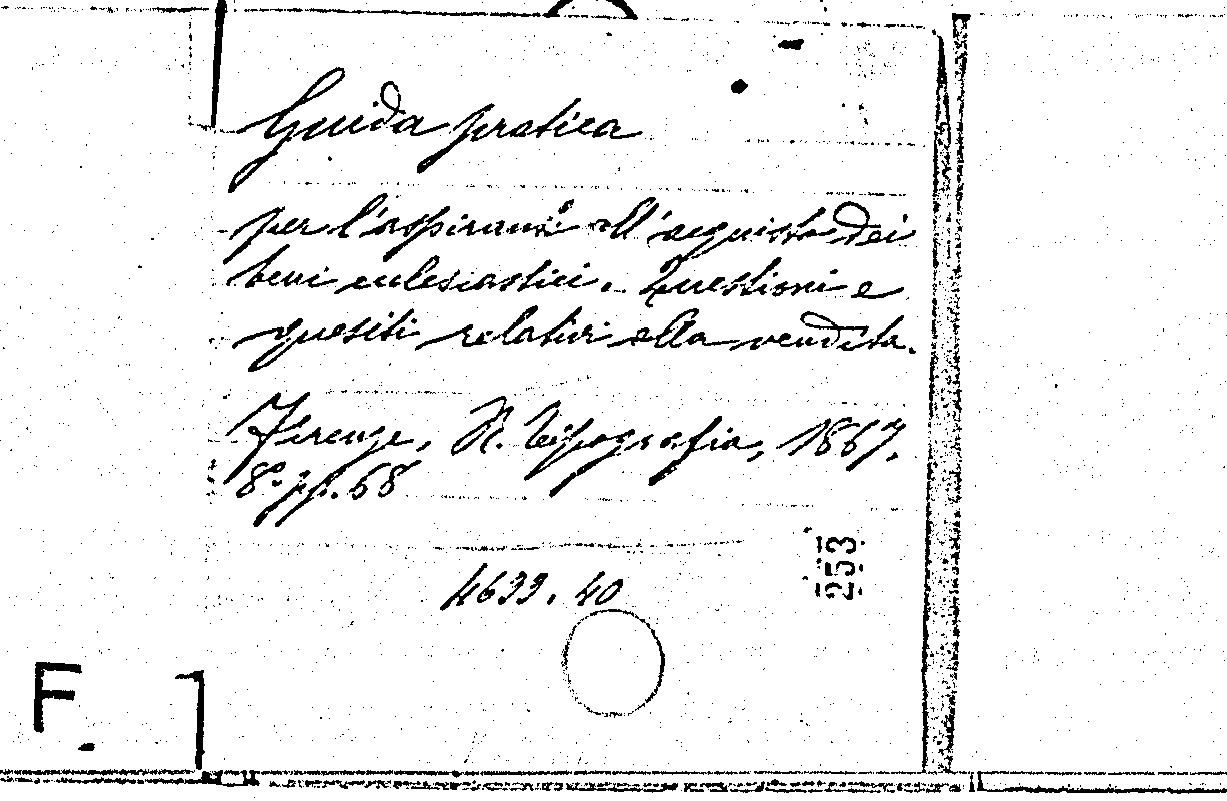 Guida pratica
per l'aspirante all'acquisto dei
beni ecclesiastici. Questioni e
quesiti relativi alla vendita.
Firenze, N. Tipografia, 1867.
8º pp. 68
4633.40
253
F